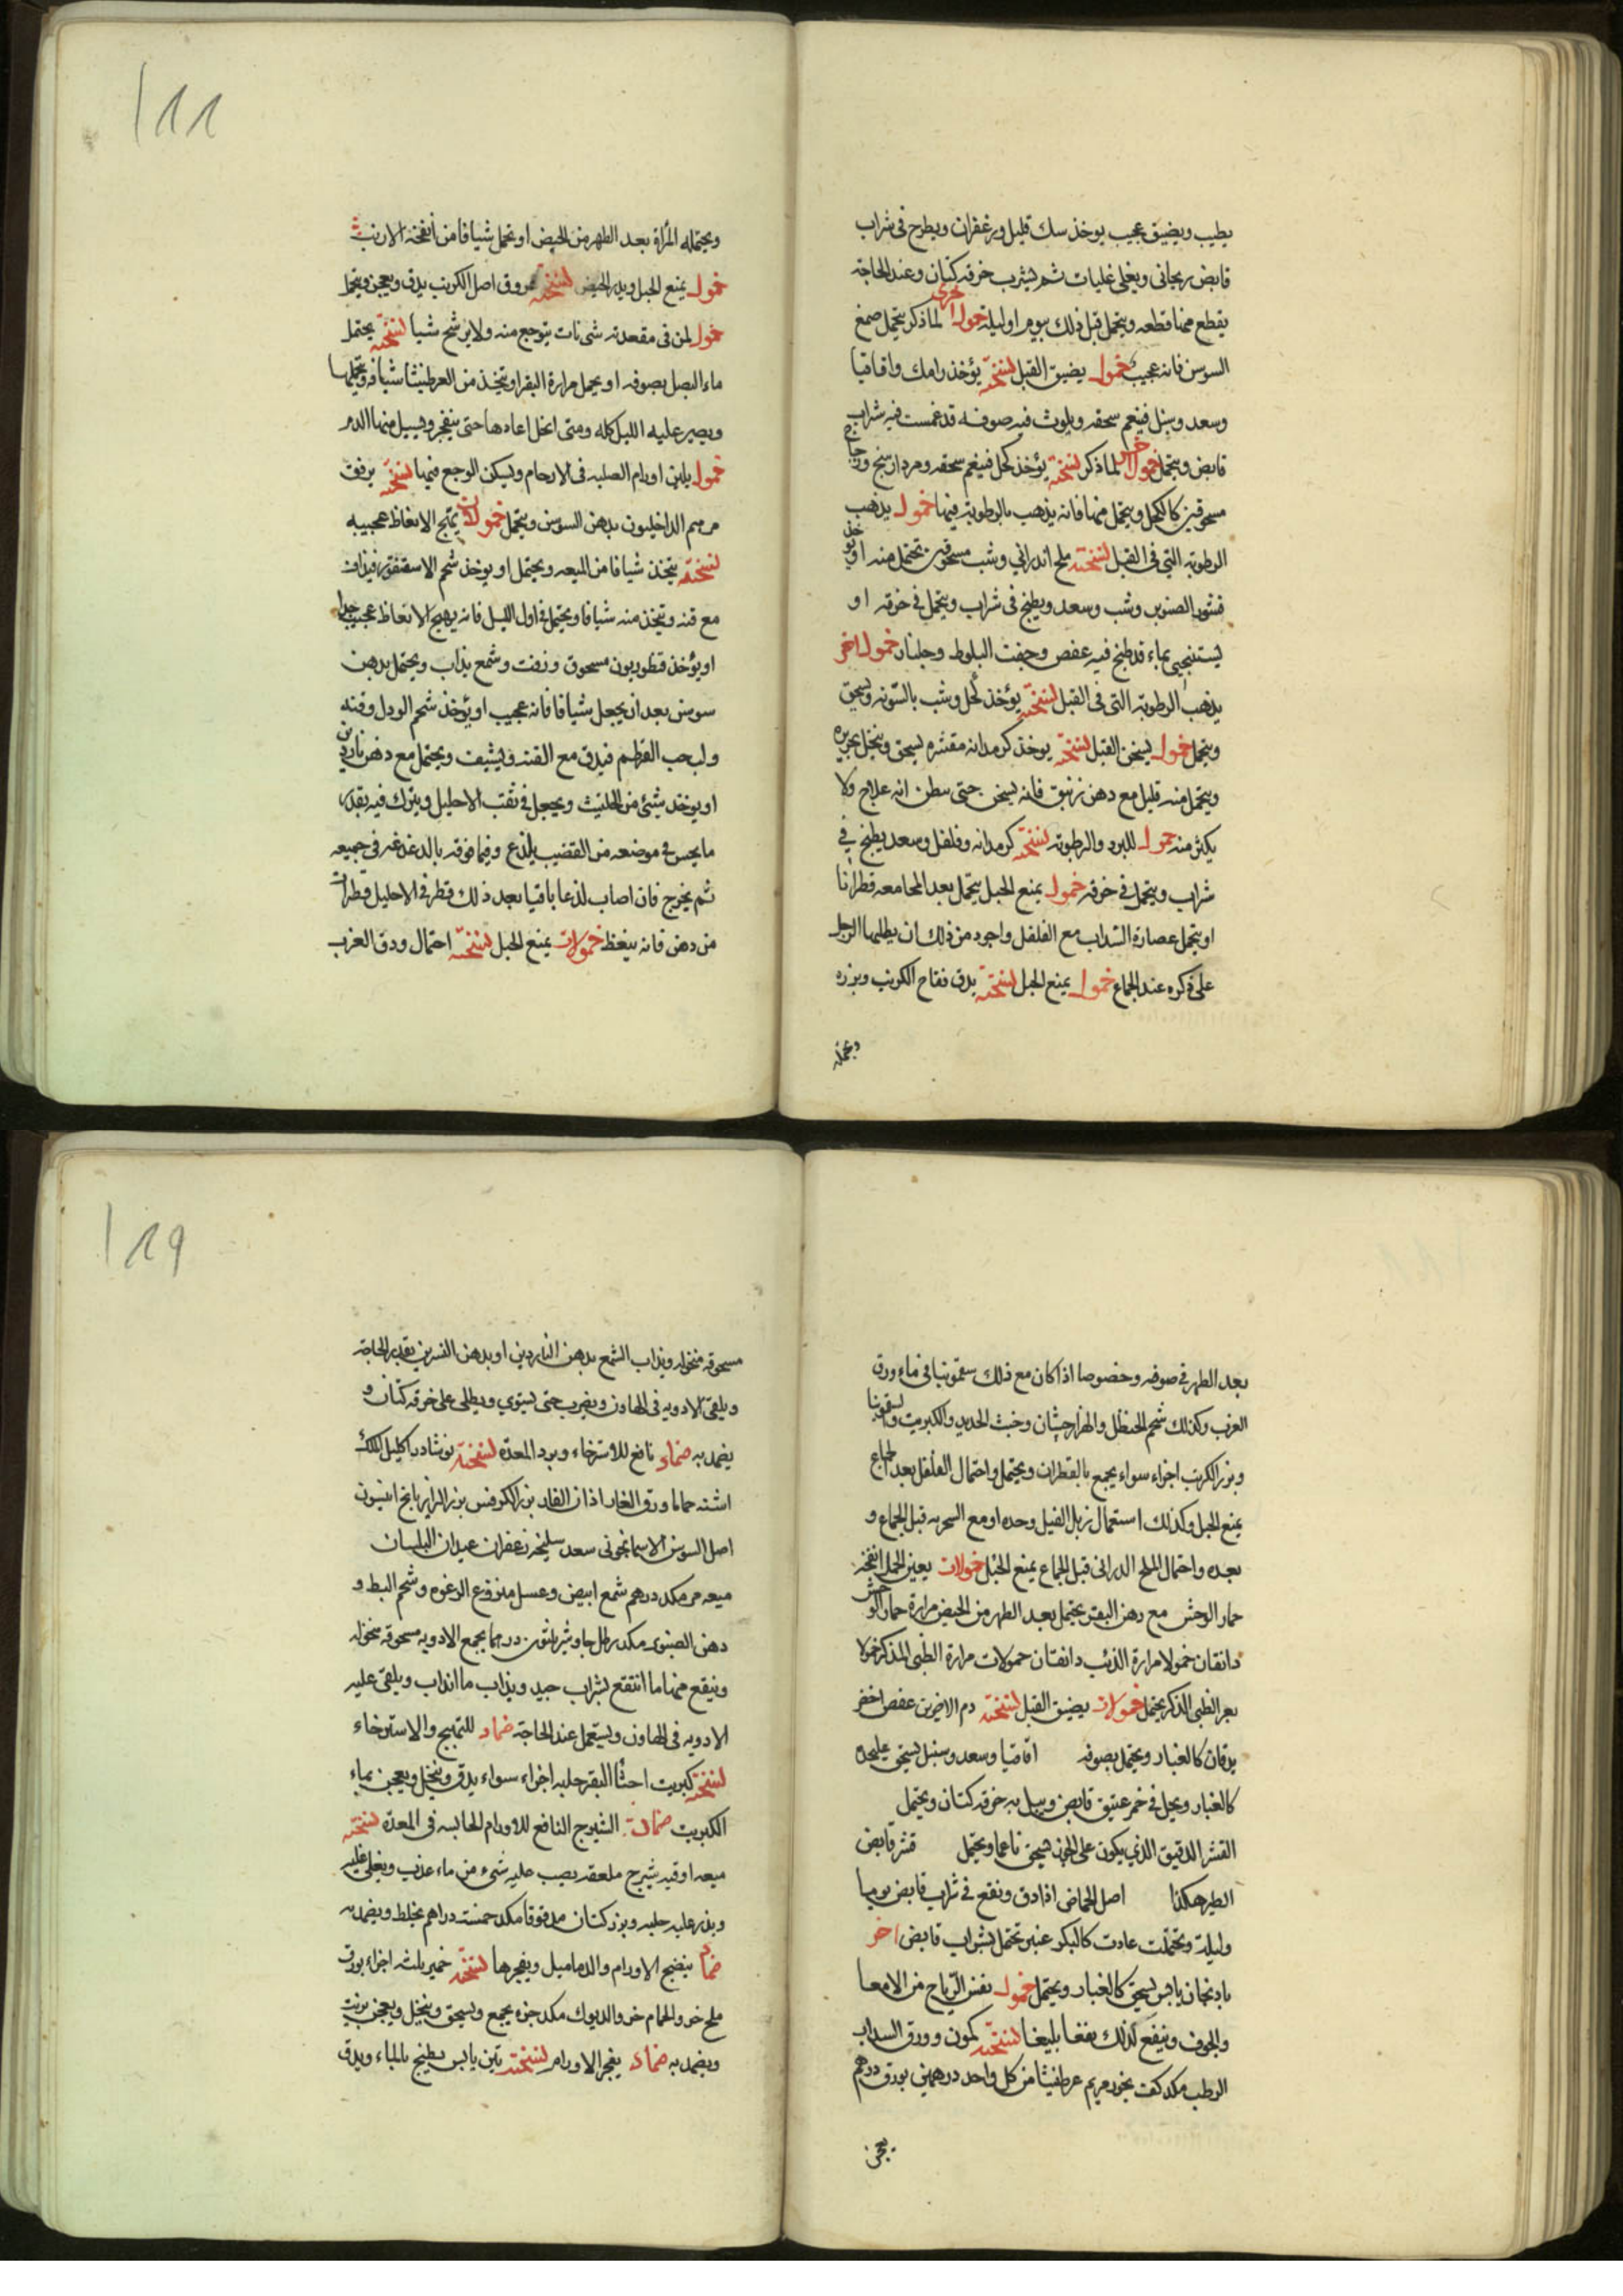 يطيب ويضيق عجيب يوخذ سك قليل وزعفران ويطرح فى شراب
قابض ريحانى ويغلى غليات ثم يشرب خرقه كتان وعند الحاجة
يقطع منها قطعه ويتحمل قبل ذلك بيوم او ليلة حمول اخرى لما ذكر يتحمل صمغ
السوسن فانه عجيب حمول يضيق القبل نسخته يؤخذ رامك واقاقيا
وسعد وسنبل فينعم سحقه ويلوث فيه صوفه قد غمست فيه شراب
قابض ويتحمل حمول اخر لما ذكر نسخته يؤخذ كحل فينعم سحقه ومرداسنج وزجاج
مسحوقين كالكحل ويتحمل منها فانه يذهب بالرطوبة فيها حمول يذهب
الرطوبة التي فى القبل نسخته ملح اندرانى وشب مسحوقين تحتمل منه او يوخذ
قشور الصنوبر وشب وسعد ويطبخ فى شراب ويتحمل فى خرقه او
يستنجى بماء قد طبخ فيه عفص وجفت البلوط وجلنار حمول اخر
يذهب الرطوبة التى فى القبل نسخته يؤخذ كحل وشب بالسويه ويسحق
ويتحمل حمول يسخن القبل نسخته يوخذ كرمدانه مقشره يسحق وينخل بحريره
ويتحمل منه قليل مع دهن زنبق فانه يسخن حتى يظن انه علاج ولا
يكثر منه حمول للبرد والرطوبة نسخته كرمدانه وفلفل وسعد يطبخ فى
شراب ويتحمل فى خرقه حمول يمنع الحبل يتحمل بعد المجامعه قطرانا
او يتحمل عصارة السداب مع الفلفل واجود من ذلك ان يطليها الرجل
على ذكره عند الجماع حمول يمنع الحبل نسخته يدق فقاح الكرنب وبزره
ويحتمله المرأة بعد الطهر من الحيض او تحمل شيافا من أنفخة الارنب
حمول يمنع الحبل ويدر الحيض نسخته عروق اصل الكرنب يدق ويعجن ويتحمل
حمول لمن فى مقعدته شى نات يتوجع منه ولا يرشح شيا نسخته يحتمل
ماء البصل بصوفه او يحمل مرارة البقر او يتخذ من العرطنيثا شيافه ويحملها
ويصبر عليه الليل كله ومتى انحل اعادها حتى ينفجر ويسيل منها الدم
حمول يلين اورام الصلبه فى الارحام ويسكن الوجع فيها نسخته يرفق
مرهم الداخليون بدهن السوسن ويتحمل حمولات يهيج الانعاظ عجيبه
نسخته يتخذ شيافا من الميعه ويحتمل او يوخذ شحم الاسقنقور فيذاب
مع قنه ويتخذ منه شيافا ويحتمل فى اول الليل فانه يهيج الانعاظ عجيب جدا
او يؤخذ قنطوريون مسحوق وزفت وشمع يذاب ويحتمل بدهن
سوسن بعد ان يجعل شيافا فانه عجيب او يؤخذ شحم الورل وقنه
ولب حب القرطم فيدق مع القنه ويشيف ويحتمل مع دهن ناردين
او يوخذ شيئ من الحلتيت ويجعل فى ثقب الاحليل ويترك فيه بقدر
ما يحس فى موضعه من القضيب يلذع وفيما فوقه بالدغدغه فى جميعه
ثم يخرج فان اصاب لذعا باقيا بعد ذلك قطر فى الاحليل قطرات
من دهن فانه ينعظ حمولات يمنع الحبل نسخته احتمال ورق الغرب
بعد الطهر فى صوفه وخصوصا اذا كان مع ذلك سقمونيا فى ماء ورق
الغرب وكذلك شحم الحنظل والهزارجشان وخبث الحديد والكبريت والسقمونيا
وبزر الكرنب اجزاء سواء يجمع بالقطران ويحتمل واحتمال الفلفل بعد الجماع
يمنع الحبل وكذلك استعمال زبل الفيل وحده او مع السحربه قبل الجماع و
بعده واحتمال الملح الدرانى قبل الجماع يمنع الحبل حمولات يعين الحمل انفخة
حمار الوحش مع دهن البقر يحتمل بعد الطهر من الحيض مرارة حمار الوحش
دانقان حمولا مرارة الذئب دانقان حمولات مرارة الظبى الذكر حمولا
بعر الظبى الذكر يحتمل حمولات يضيق القبل نسخته دم الاخوين عفص اخضر
يدقان كالغبار ويحتمل بصوفه اقاقيا وسعد وسنبل يسحق على حده
كالغبار ويحل فى خمر عتيق قابض ويبل به خرقه كتان ويحتمل
القشر الدقيق الذي يكون على الجوز يسحق ناعما ويحتمل قشر قابض
الطير هكذا اصل الحماض اذا دق ونقع فى شراب قابض يوما
وليلة وتحملت عادت كالبكر عنبر تحتمل بشراب قابض اخر
باذنجان يابس يسحق كالغبار ويحتمل حمول نفش الرياح من الامعا
والجوف وينفع كذلك نفعا بليغا نسخته كمون وورق السداب
الرطب مكد كف بخور مريم عرطنيثا من كل واحد درهمين بورق درهم
يعجن
مسحوقه منخوله ويذاب الشمع بدهن الناردين او بدهن النسرين بقدر الحاجة
ويلقى الادويه فى الهاون ويضرب حتى يستوي ويطلى على خرقه كتان و
يضمد به ضماد نافع للاسترخاء وبرد المعدة نسخته نوشادر اكليل الملك
اشنه حماما ورق الغار اذان الفار بزر الكرفس بزر الرازيانج انيسون
اصل السوسن الاسمانجونى سعد سليخه زعفران عيدان البلسان
ميعه مر مكد درهم شمع ابيض وعسل منزوع الرغوه وشحم البط و
دهن الصنوبر مكد رطل جاوشير ثلثون درهما يجمع الادويه مسحوقه منخوله
وينقع منها ما انتقع بشراب جيد ويذاب ما انذاب ويلقى عليه
الادويه فى الهاون ويستعمل عند الحاجة ضماد للتهبج والاسترخاء
نسخته كبريت اخثا البقر حلبه اجزاء سواء يدق وينخل ويعجن بماء
الكبريت ضماد الشيرج النافع للاورام الجاسيه فى المعدة نسخته
ميعه اوقيه شيرج ملعقه يصب عليه شىء من ماء عذب ويغلى عليه
وبذر عليه حلبه وبزر كتان مدقوقا مكد خمسة دراهم يخلط ويضمد به
ضماد ينضج الاورام والدماميل ويفجرها نسخته خمير ثلث اجزاء بورق
ملح خرو الحمام خرو الديوك مكد جزء يجمع ويسحق وينخل ويعجن بزيت
ويضمد به ضماد يفجر الاورام نسخته تين يابس يطبخ بالماء ويدق